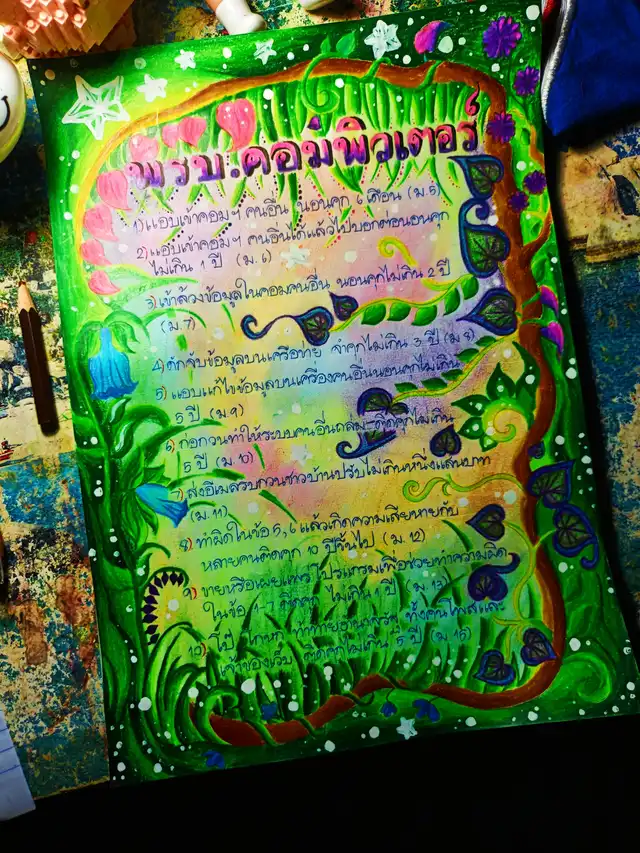 พรบ.คอมพิวเตอร์
1) แอบเข้าคอมฯ คนอื่น นอนคุก 6 เดือน (ม.5)
2) แอบเข้าคอมฯ คนอื่นได้แล้วไปบอกต่อนอนคุก
ไม่เกิน 1 ปี (ม.6)
3) เข้าล้วงข้อมูลในคอมคนอื่น นอนคุกไม่เกิน 2 ปี
(ม.7)
4) ดักจับข้อมูลบนเครือข่าย จำคุกไม่เกิน 3 ปี (ม.8)
5) แอบแก้ไขข้อมูลบนเครื่องคนอื่นนอนคุกไม่เกิน
5 ปี (ม.9)
6) ก่อกวนทำให้ระบบคนอื่นถล่ม ติดคุกไม่เกิน
5 ปี (ม.10)
7) ส่งอีเมลรบกวนชาวบ้านปรับไม่เกินหนึ่งแสนบาท
(ม.11)
8) ทำผิดในข้อ 5,6 แล้วเกิดความเสียหายกับ
หลายคนติดคุก 10 ปีขึ้นไป (ม.12)
9) ขายหรือเผยแพร่โปรแกรมเพื่อช่วยทำความผิด
ในข้อ 1-7 ติดคุก ไม่เกิน 1 ปี (ม.13)
10) โป๊ โกหก ท้าทายอำนาจรัฐ ทั้งคนโพสและ
เจ้าของเว็บ ติดคุกไม่เกิน 5 ปี (ม.15)